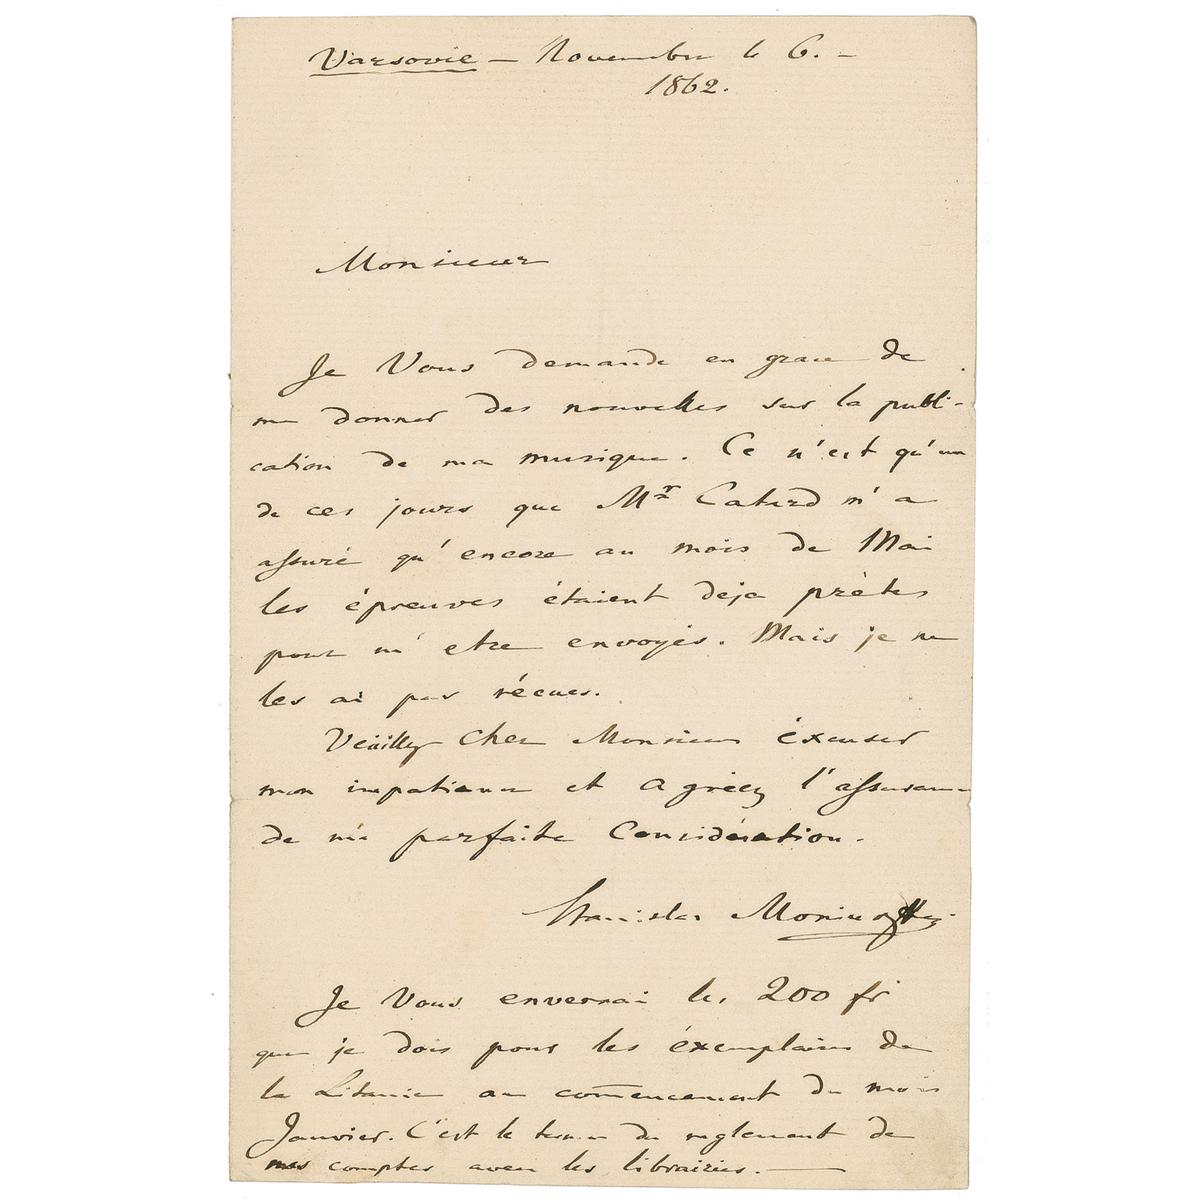 Varsovie – Novembre le 6. –
1862.
Monsieur
Je Vous demande en grace de
me donner des nouvelles sur la publi-
cation de ma musique. Ce n'est qu'un
de ces jours que Mr m'a
assuré qu'encore au mois de Mai
les épreuves étaient deja prètes
pour m'etre envoyés. Mais je ne
les ai pas récues.
Veuillez cher Monsieur éxcuser
mon impatience et agréez l'assurance
de ma parfaite Considération.
Stanislas Moniuszko
Je Vous enverrai les 200 fr
que je dois pour les éxemplaires de
la Litanie au com̄encement du mois
Janvier. C'est le terme du reglement de
mes comptes avec les librairies. —